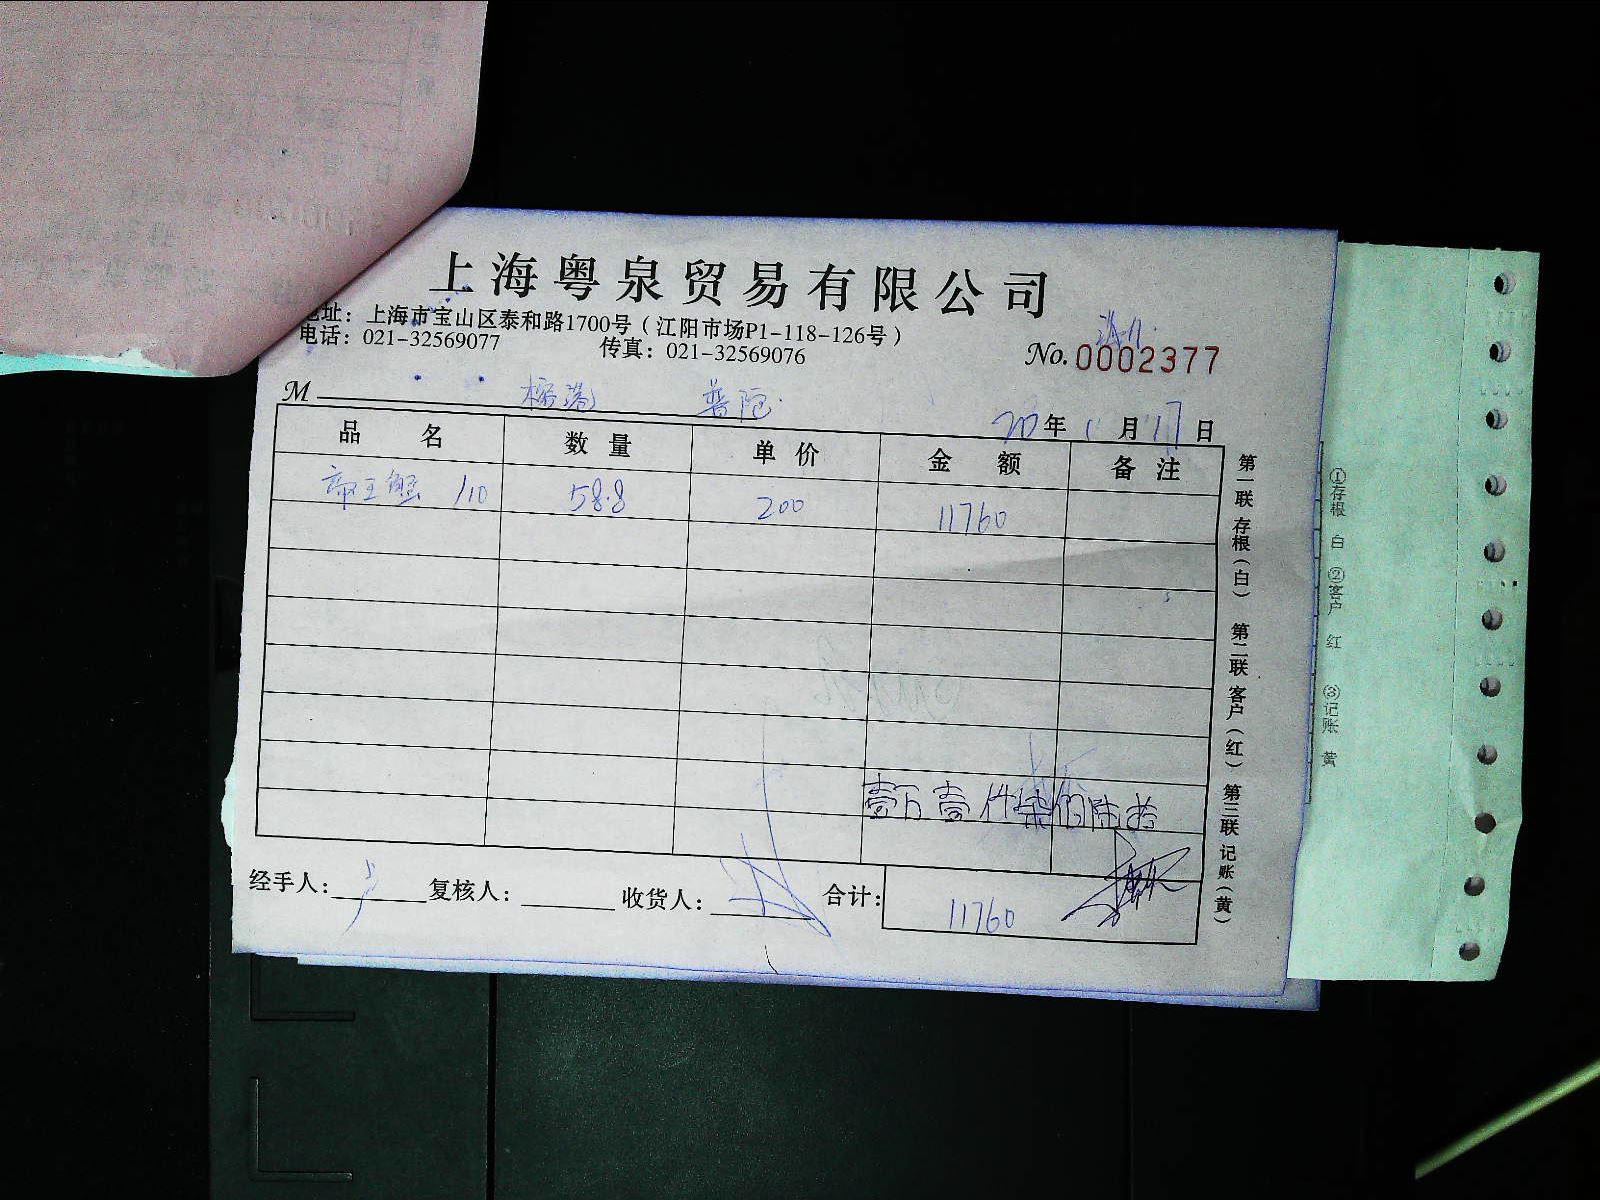 上海粤泉贸易有限公司
地址：上海市宝山区泰和路1700号（江阳市场P1-118-126号）
电话：021-32569077 传真：021-32569076
No. 0002377
M 普陀
20年1月17日
品名 数量 单价 金额 备注
帝王蟹 /10 58.8 200 11760
壹万壹仟柒佰陆拾
经手人： 复核人： 收货人： 合计： 11760
第一联 存根（白） 第二联 客户（红） 第三联 记账（黄）
①存根 白 ②客户 红 ③记账 黄